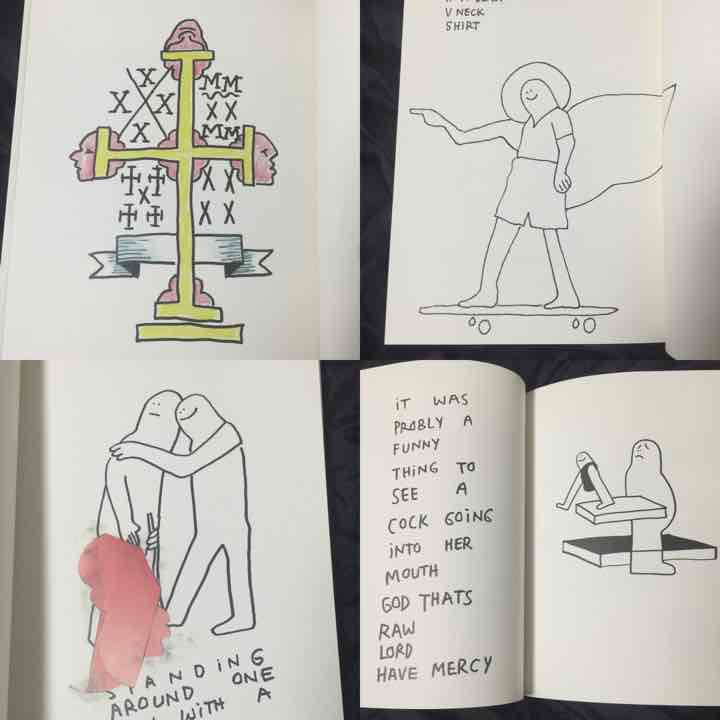 X
MM
X X
X X
X
MM
X X X
X X
V NECK
SHIRT
STANDING
AROUND ONE
WITH A
IT WAS
PROBLY A
FUNNY
THING TO
SEE A
COCK GOING
INTO HER
MOUTH
GOD THATS
RAW
LORD
HAVE MERCY